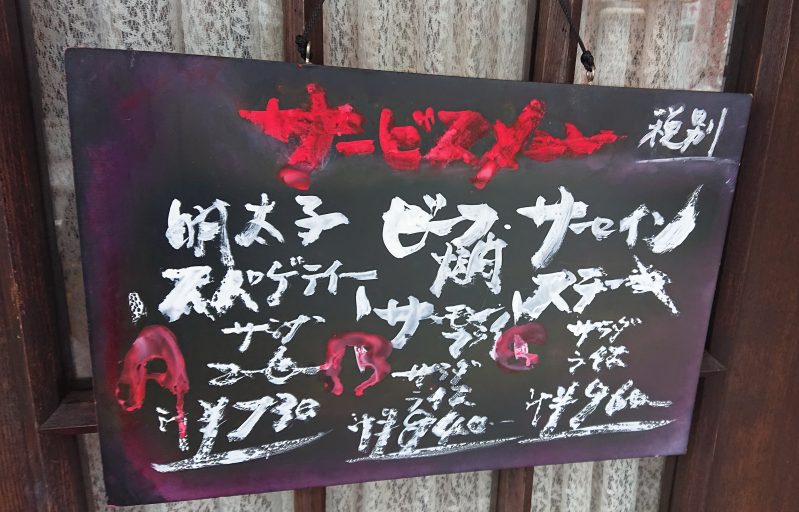 サービスメー
税別
明太子
スパゲティー
A
サラダ
コーヒー
¥730
ビーフ
焼肉
B
サーモン
フライ
サラダ
ライス
¥840
サーロイン
ステーキ
C
サラダ
ライス
¥960